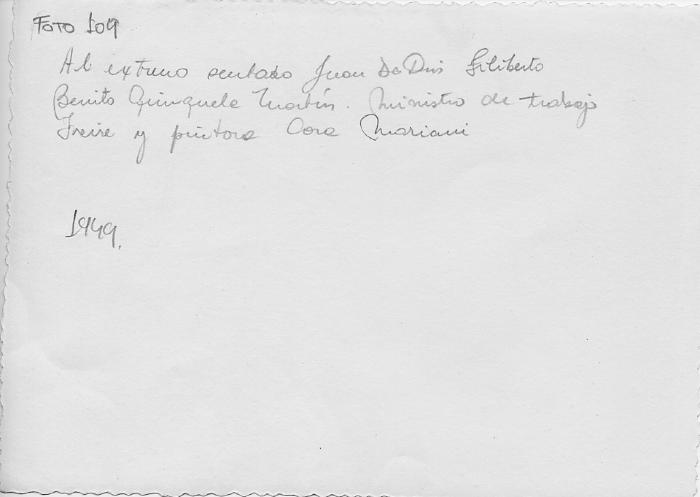 FOTO 109
Al extremo sentado Juan De Dios Filiberto
Benito Quinquela Martín. Ministro de trabajo
Freire y pintora Cora Mariani
1949.